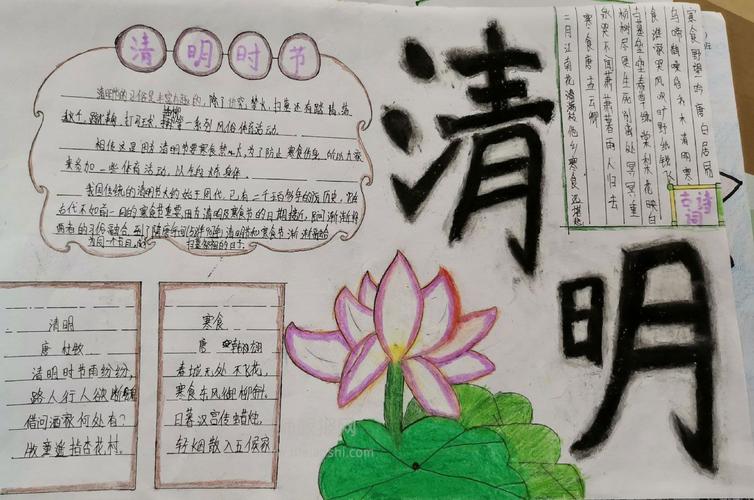 清明时节
清明节的习俗是丰富有趣的，除了讲究禁火、扫墓还有踏青、荡
秋千、蹴鞠、打马球、插柳等一系列风俗体育活动。
相传这是因为清明节要寒食禁火，为了防止寒食伤身，所以大家
来参加一些体育活动，以锻炼身体。
我国传统的清明节大约始于周代，已有二千五百多年的历史，
古代不如前一日的寒食节重要，因为清明及寒食节的日期接近，民间渐渐将
两者的习俗融合，到了隋唐年间清明节和寒食节渐渐融合
为同一个节日，
扫墓祭祖的日子
清明
唐 杜牧
清明时节雨纷纷，
路人行人欲断魂
借问酒家何处有？
牧童遥指杏花村。
寒食
唐 韩翃
春城无处不飞花，
寒食东风御柳斜。
日暮汉宫传蜡烛，
轻烟散入五侯家
清明
寒食野望吟 唐 白居易
乌啼鹊噪昏乔木 清明寒
食谁家哭 风吹旷野纸钱飞
古墓垒垒春草绿 棠梨花映白
杨树 尽是生死别离处 冥冥重
泉哭不闻 萧萧暮雨人归去
寒食 唐 孟云卿
二月江南花满枝 他乡寒食远堪悲
古诗词